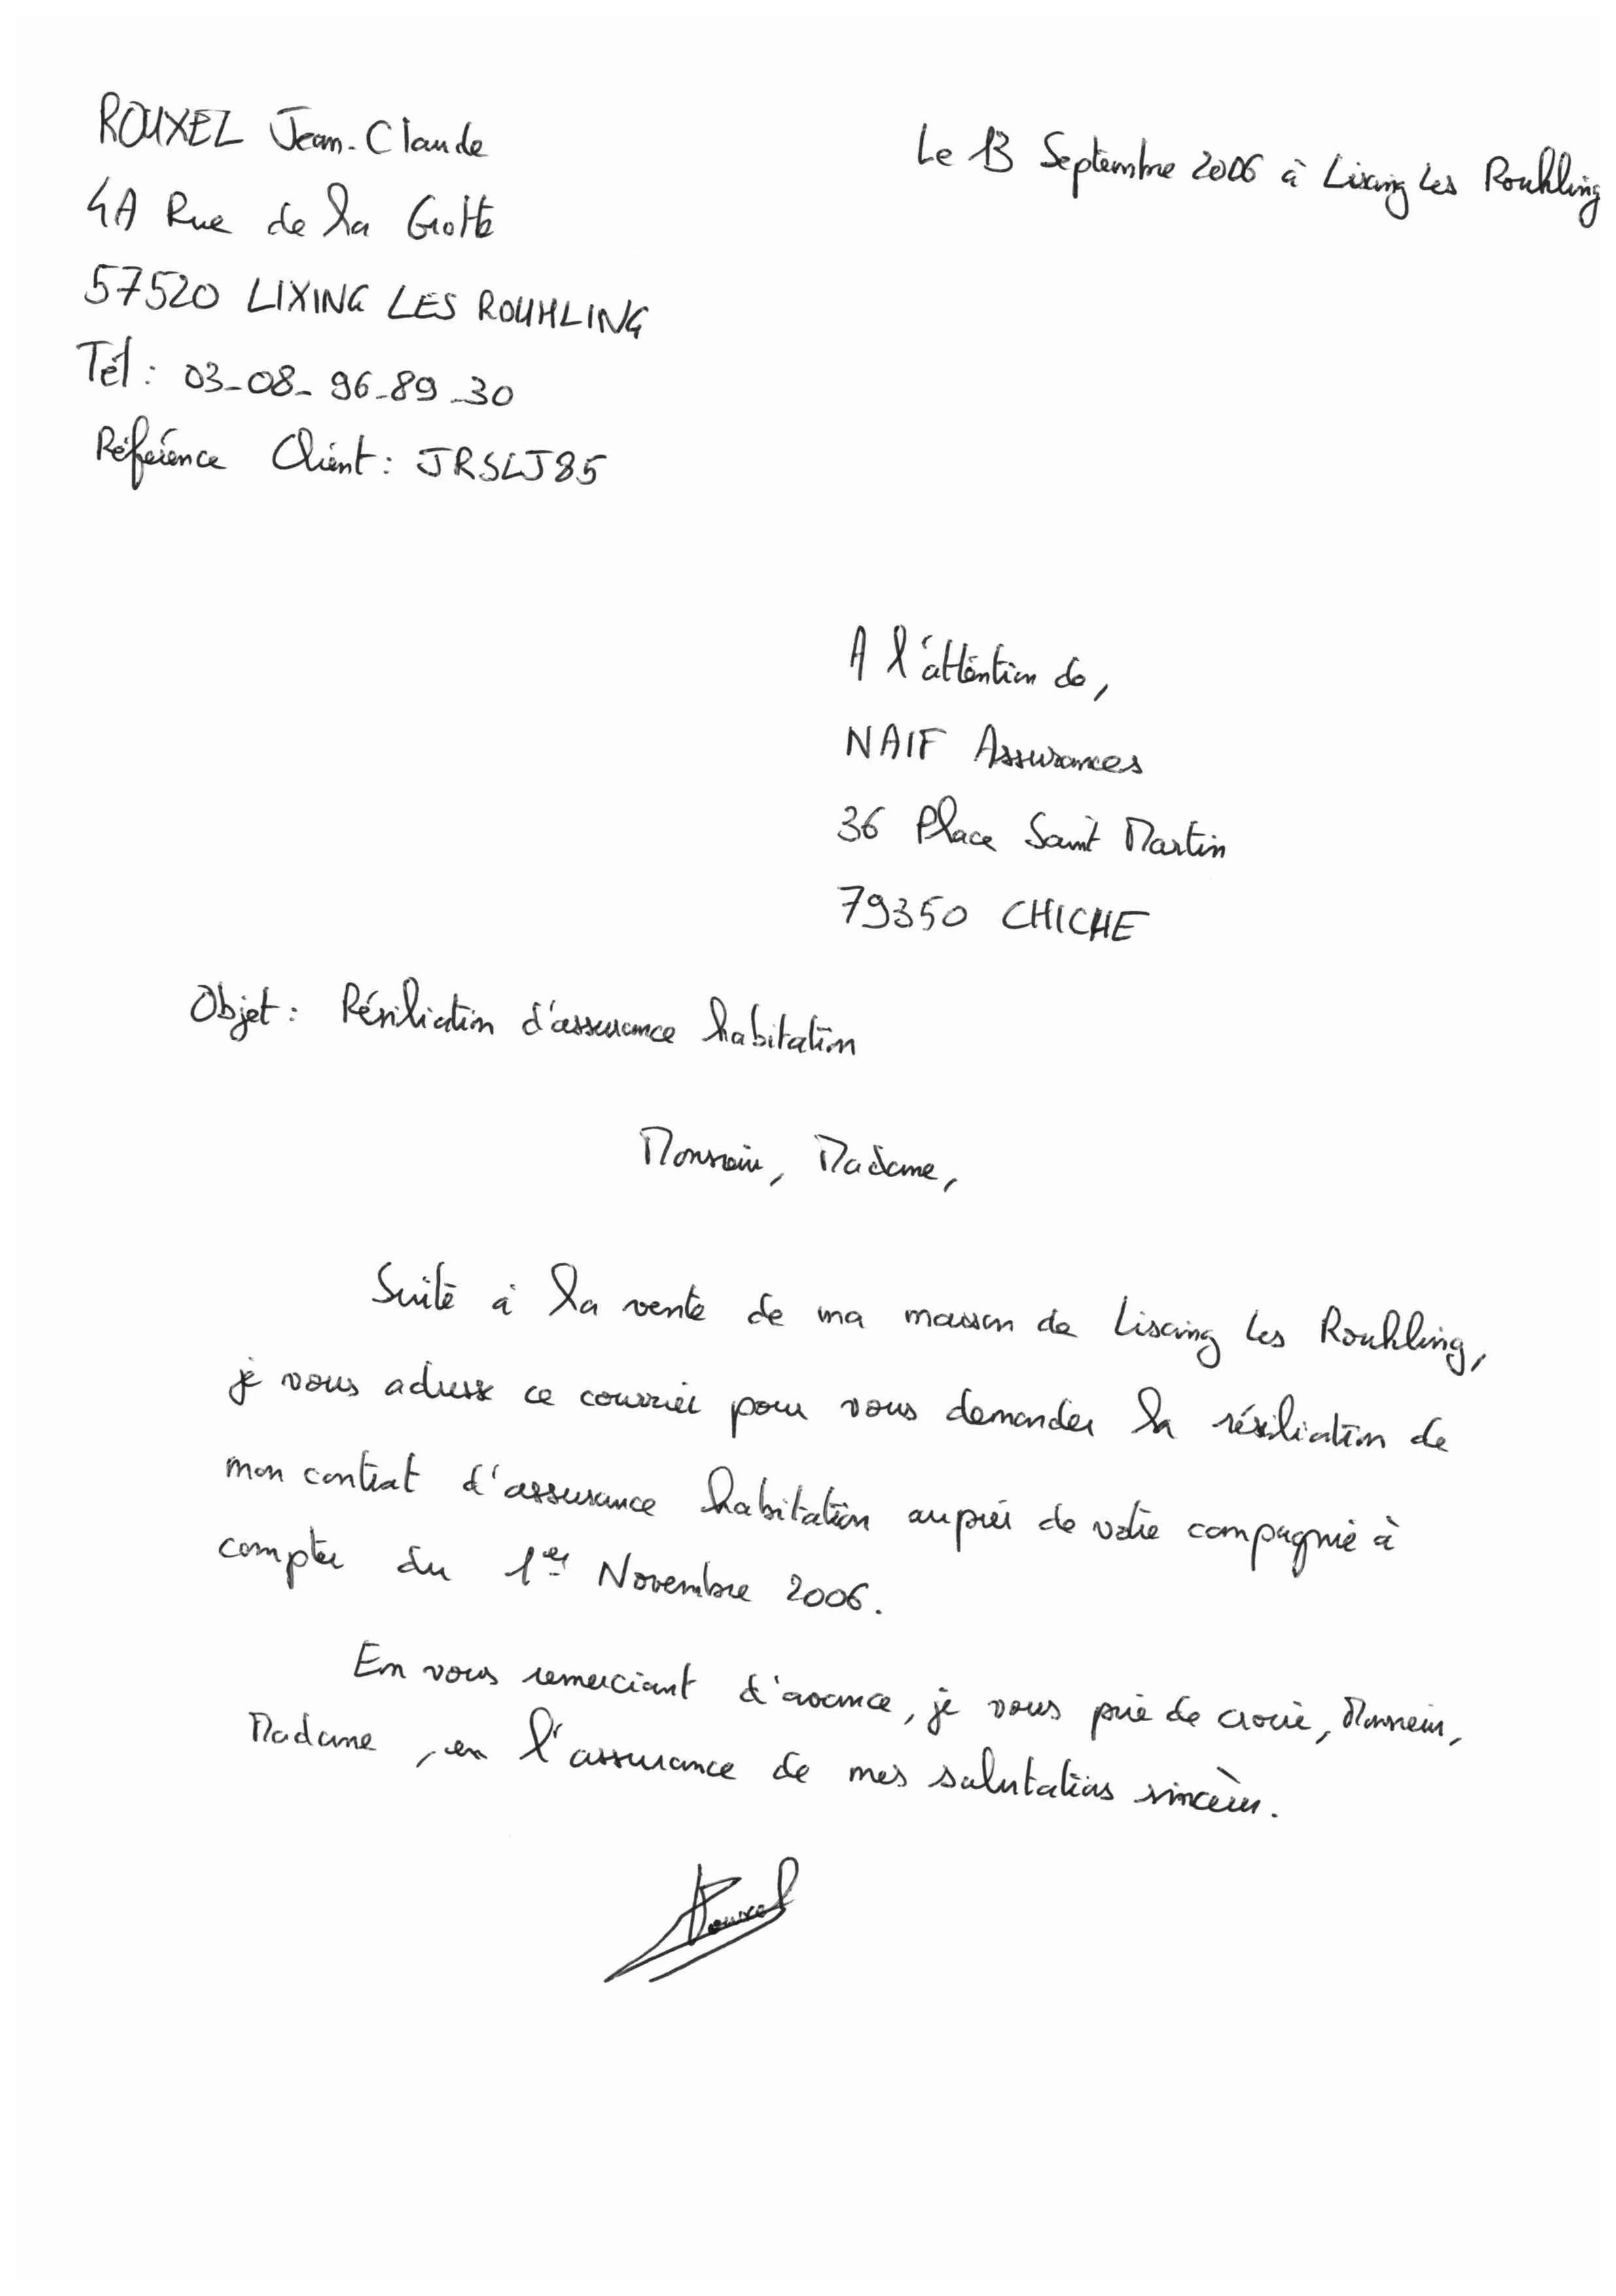 ROUXEL Jean-Claude
Le 13 Septembre 2006 à Lixing Les Rouhling
4A Rue de la Grotte
57520 LIXING LES ROUHLING
Tél : 03-08-96-89-30
Référence Client : JRSLJ85
A l'attention de,
NAIF Assurances
36 Place Saint Martin
79350 CHICHE
Objet : Résiliation d'assurance habitation
Monsieur, Madame,
Suite à la vente de ma maison de Lixing Les Rouhling,
je vous adresse ce courrier pour vous demander la résiliation de
mon contrat d'assurance habitation auprès de votre compagnie à
compter du 1er Novembre 2006.
En vous remerciant d'avance, je vous prie de croire, Monsieur,
Madame, en l'assurance de mes salutations sincères.
Rouxel